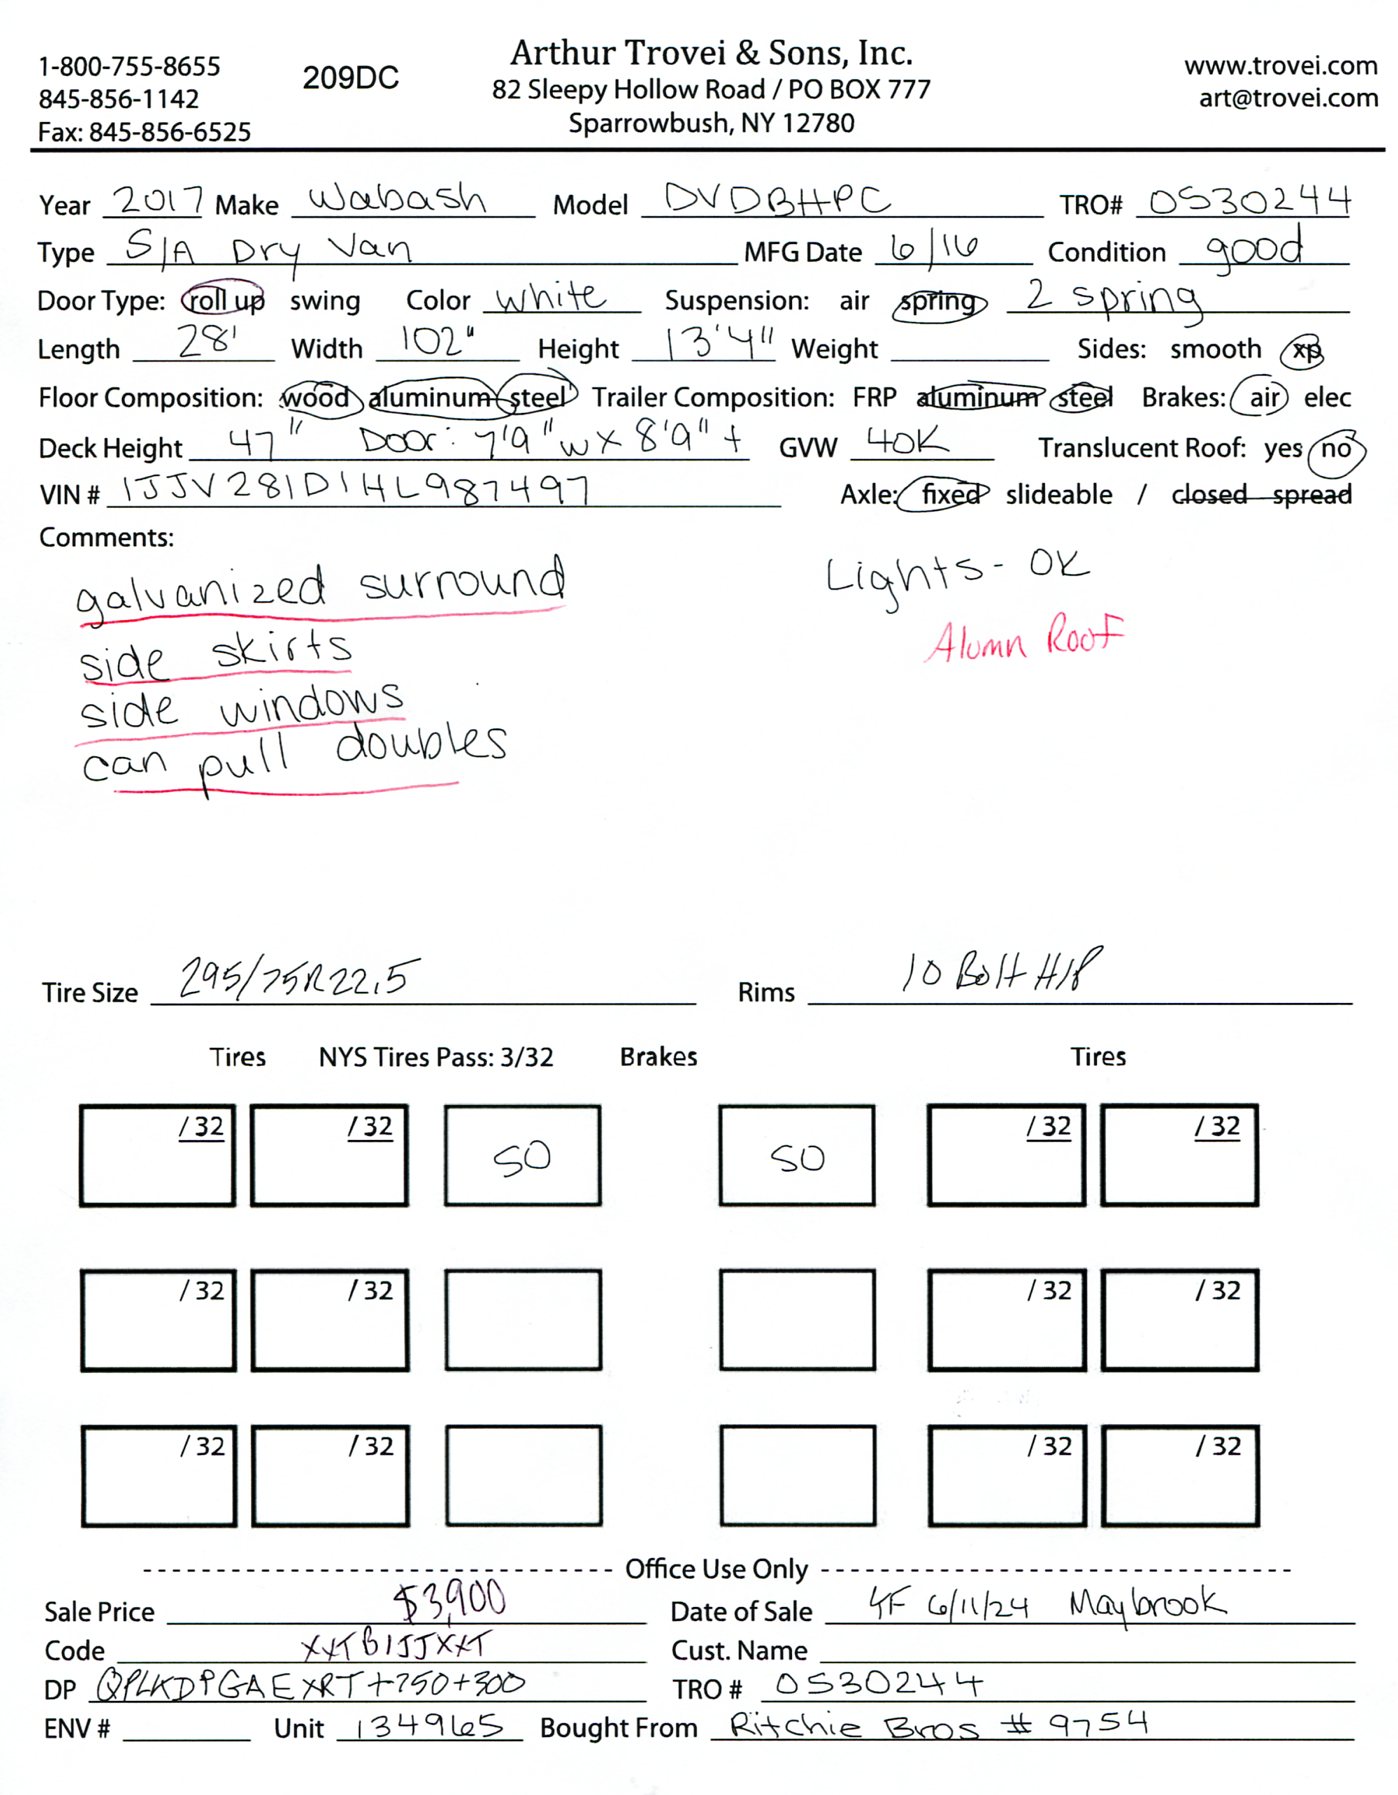 1-800-755-8655
845-856-1142
Fax: 845-856-6525
209DC
Arthur Trovei & Sons, Inc.
82 Sleepy Hollow Road / PO BOX 777
Sparrowbush, NY 12780
www.trovei.com
art@trovei.com
Year 2017 Make Wabash Model DVDBHPC TRO# 0530244
Type S/A Dry Van MFG Date 6/16 Condition good
Door Type: roll up swing Color white Suspension: air spring 2 spring
Length 28' Width 102" Height 13'4" Weight Sides: smooth xp
Floor Composition: wood aluminum steel Trailer Composition: FRP aluminum steel Brakes: air elec
Deck Height 47" Door: 7'9" w x 8'9" + GVW 40K Translucent Roof: yes no
VIN # 1JJV281D1HL987497 Axle: fixed slideable / closed spread
Comments:
galvanized surround
side skirts
side windows
can pull doubles
Lights - OK
Alumn Roof
Tire Size 295/75R22.5 Rims 10 Bolt H/P
Tires NYS Tires Pass: 3/32 Brakes Tires
/32 /32 50 50 /32 /32
/32 /32 /32 /32
/32 /32 /32 /32
Office Use Only
Sale Price $3,900 Date of Sale 6/11/24 Maybrook
Code XXTBIJJXXT Cust. Name
DP QPLKDPGAEXRT+750+300 TRO # 0530244
ENV # Unit 134965 Bought From Ritchie Bros # 9754